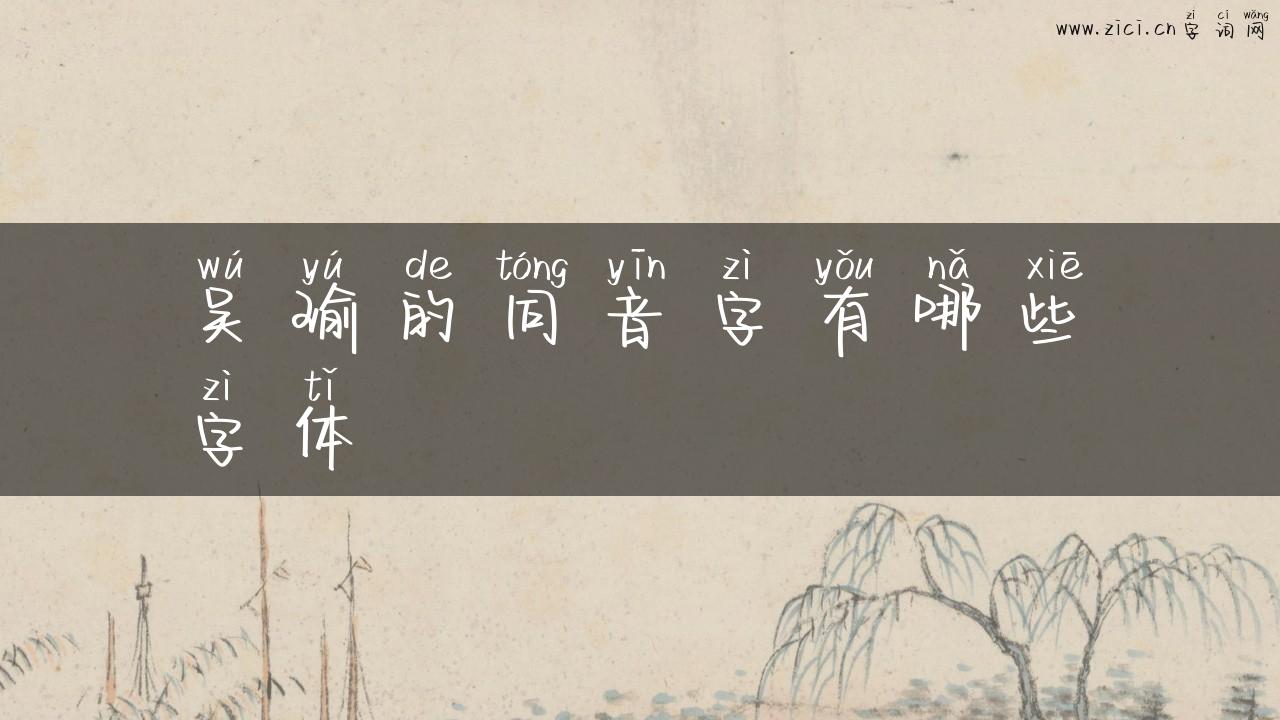 zì cí wǎng
www.zici.cn 字词网
wú yú de tóng yīn zì yǒu nǎ xiē
吴瑜的同音字有哪些
zì tǐ
字体